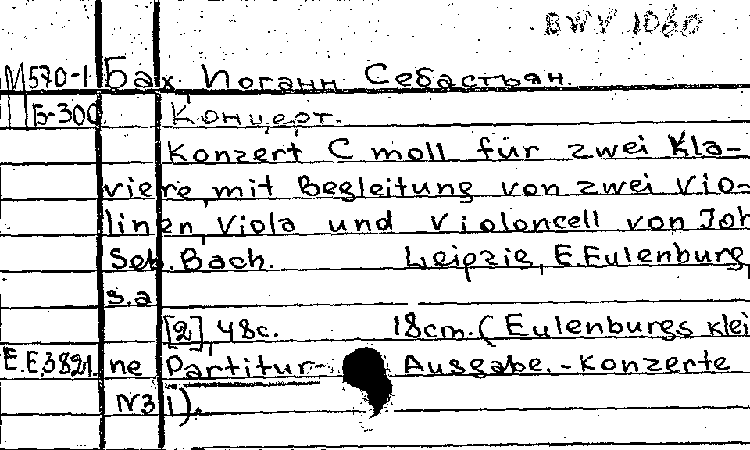 BWV 1060
М570-1 Бах, Иоганн Себастьян.
Б-300 Концерт.
Konzert C moll für zwei Kla-
viere, mit Begleitung von zwei Vio-
linen, Viola und Violoncell von Joh
Seb. Bach. Leipzie, E. Eulenburg,
s.a
[2], 48c. 18cm. (Eulenburgs klei
E.E.3821. ne Partitur- Ausgabe. - Konzerte
N31).